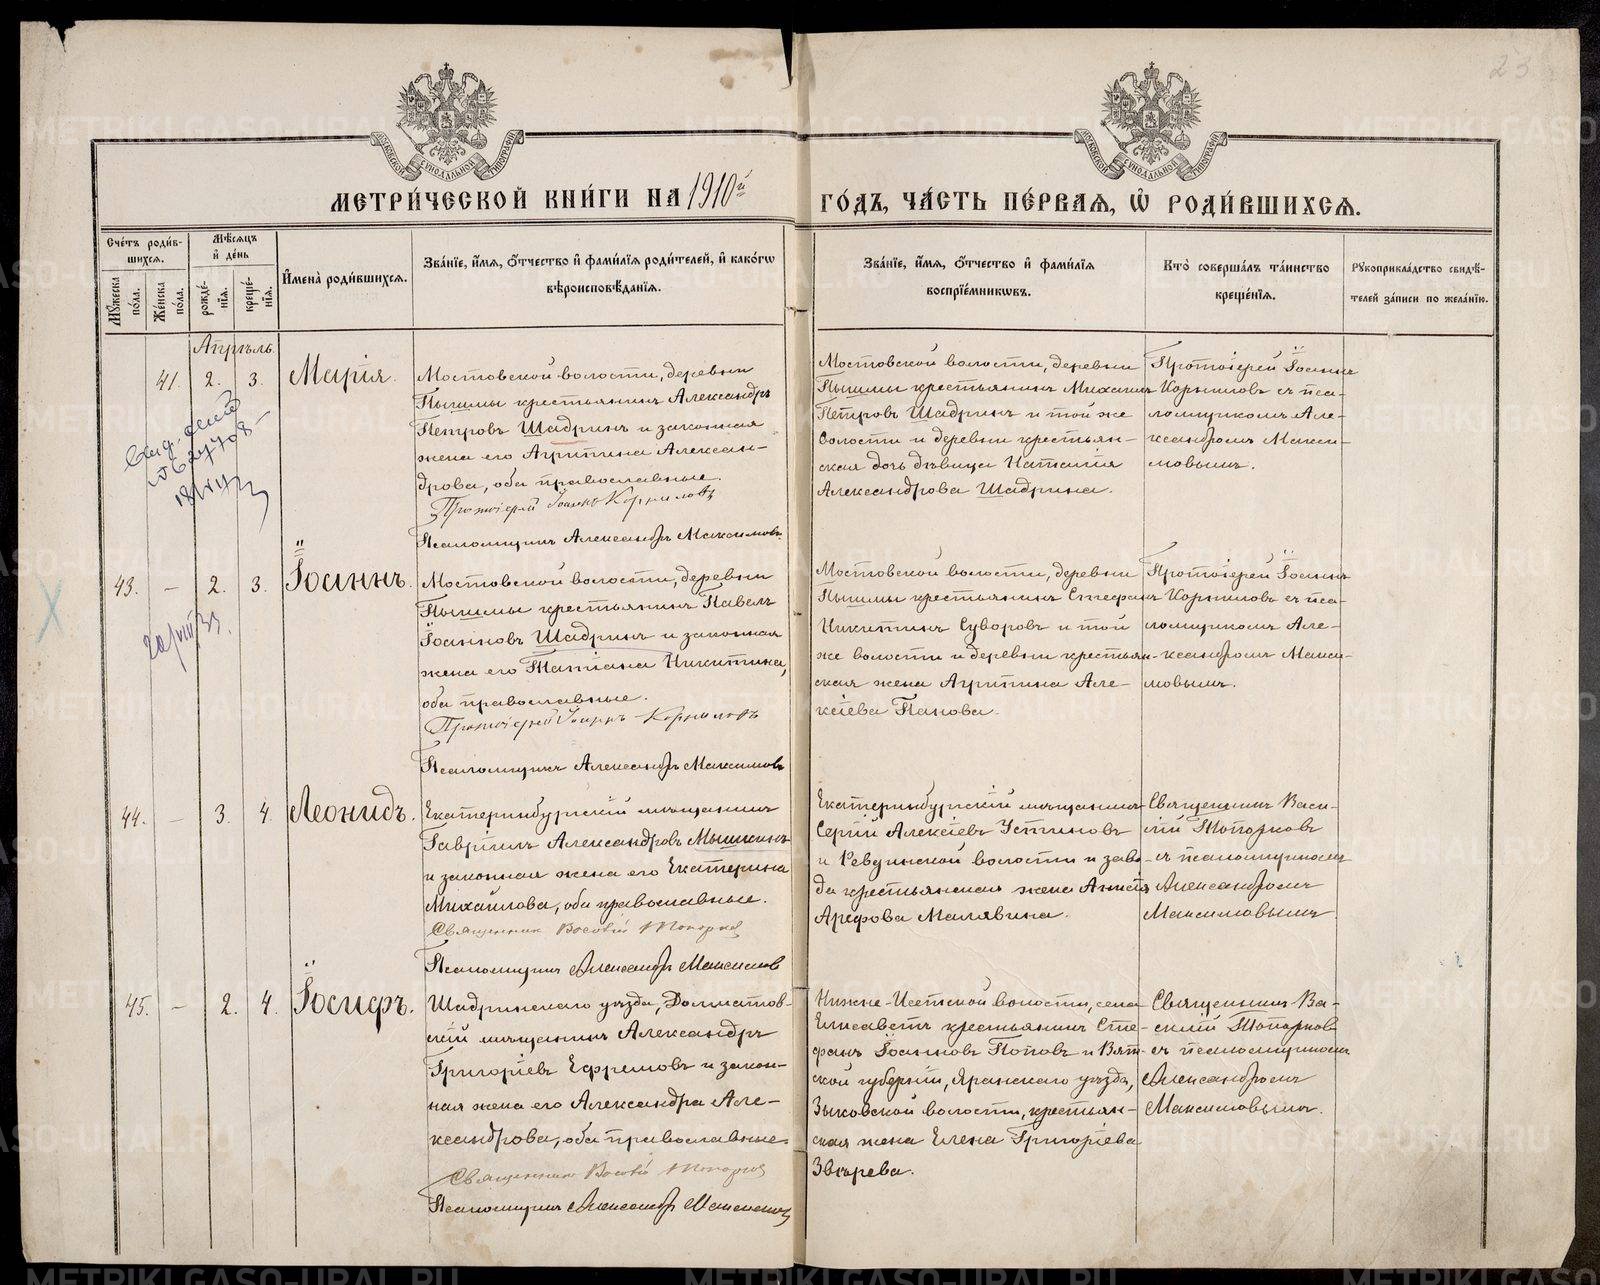 23
МОСКОВСКОЙ СУНОДАЛЬНОЙ ТИПОГРАФІИ
МОСКОВСКОЙ СУНОДАЛЬНОЙ ТИПОГРАФІИ
МЕТРИ́ЧЕСКОЙ КНИ́ГИ НА 1910й
ГО́ДЪ, ЧА́СТЬ ПЕ́РВАЯ, Ѽ РОДИ́ВШИХСЯ.
Сче́тъ роди́вшихся.
Мꙋ́жеска по́ла.
Же́нска по́ла.
Мѣ́сяцъ и҆ де́нь
рожде́нїѧ.
креще́нїѧ.
И҆мена̀ роди́вшихсѧ.
Зва́нїе, и҆́мѧ, ѻ҆́тчество и҆ фами́лїѧ роди́телей, и҆ како́гѡ
вѣроисповѣ́данїѧ.
Зва́нїе, и҆́мѧ, ѻ҆́тчество и҆ фами́лїѧ
воспрїе́мникѡвъ.
Кто̀ соверша́лъ та́инство
креще́нїѧ.
Рꙋкоприкла́дство свидѣ́-
телей за́писи по жела́нїю.
Апрѣль.
41. 2. 3. Марія.
Мостовской волости, деревни
Пышмы крестьянинъ Александръ
Петровъ Шадринъ и законная
жена его Агрипина Алексан-
дрова, оба православные.
Протоіерей Іоаннъ Корниловъ
Псаломщикъ Александръ Максимовъ
Мостовской волости, деревни
Пышмы крестьянинъ Михаилъ
Петровъ Шадринъ и той же
волости и деревни крестьян-
ская дочь дѣвица Наталія
Александрова Шадрина.
Протоіерей Іоаннъ
Корниловъ съ пса-
ломщикомъ Але-
ксандромъ Макси-
мовымъ.
43. – 2. 3. Іоаннъ.
20/VIII 33.
Мостовской волости, деревни
Пышмы крестьянинъ Павелъ
Іоанновъ Шадринъ и законная
жена его Татіана Никитина,
оба православные.
Протоіерей Іоаннъ Корниловъ
Псаломщикъ Александръ Максимовъ
Мостовской волости, деревни
Пышмы крестьянинъ Стефанъ
Никитинъ Суворовъ и той
же волости и деревни крестьян-
ская жена Агрипина Але-
ксіева Панова.
Протоіерей Іоаннъ
Корниловъ съ пса-
ломщикомъ Але-
ксандромъ Макси-
мовымъ.
44. – 3. 4. Леонидъ.
Екатеринбургскій мѣщанинъ
Гавріилъ Александровъ Мышкинъ
и законная жена его Екатерина
Михайлова, оба православные.
Священник Васілій Топорков
Псаломщикъ Александръ Максимов
Екатеринбургскій мѣщанинъ
Сергій Алексіевъ Устиновъ
и Ревдинской волости и заво-
да крестьянская жена Анисія
Арефова Малявина.
Священникъ Васи-
лій Топорковъ
съ псаломщикомъ
Александромъ
Максимовымъ.
45. – 2. 4. Іосифъ.
Шадринскаго уѣзда, Долматов-
скій мѣщанинъ Александръ
Григоріевъ Ефремовъ и закон-
ная жена его Александра Але-
ксандрова, оба православные.
Священник Васілій Топорков
Псаломщикъ Александръ Максимовъ
Нижне-Исетской волости, села
Елисаветъ крестьянинъ Сте-
фанъ Іоанновъ Поповъ и Вят-
ской губерніи, Яранскаго уѣзда,
Зыковской волости, крестьян-
ская жена Елена Григоріева
Звѣрева.
Священникъ Ва-
силій Топорковъ
съ псаломщикомъ
Александромъ
Максимовымъ.